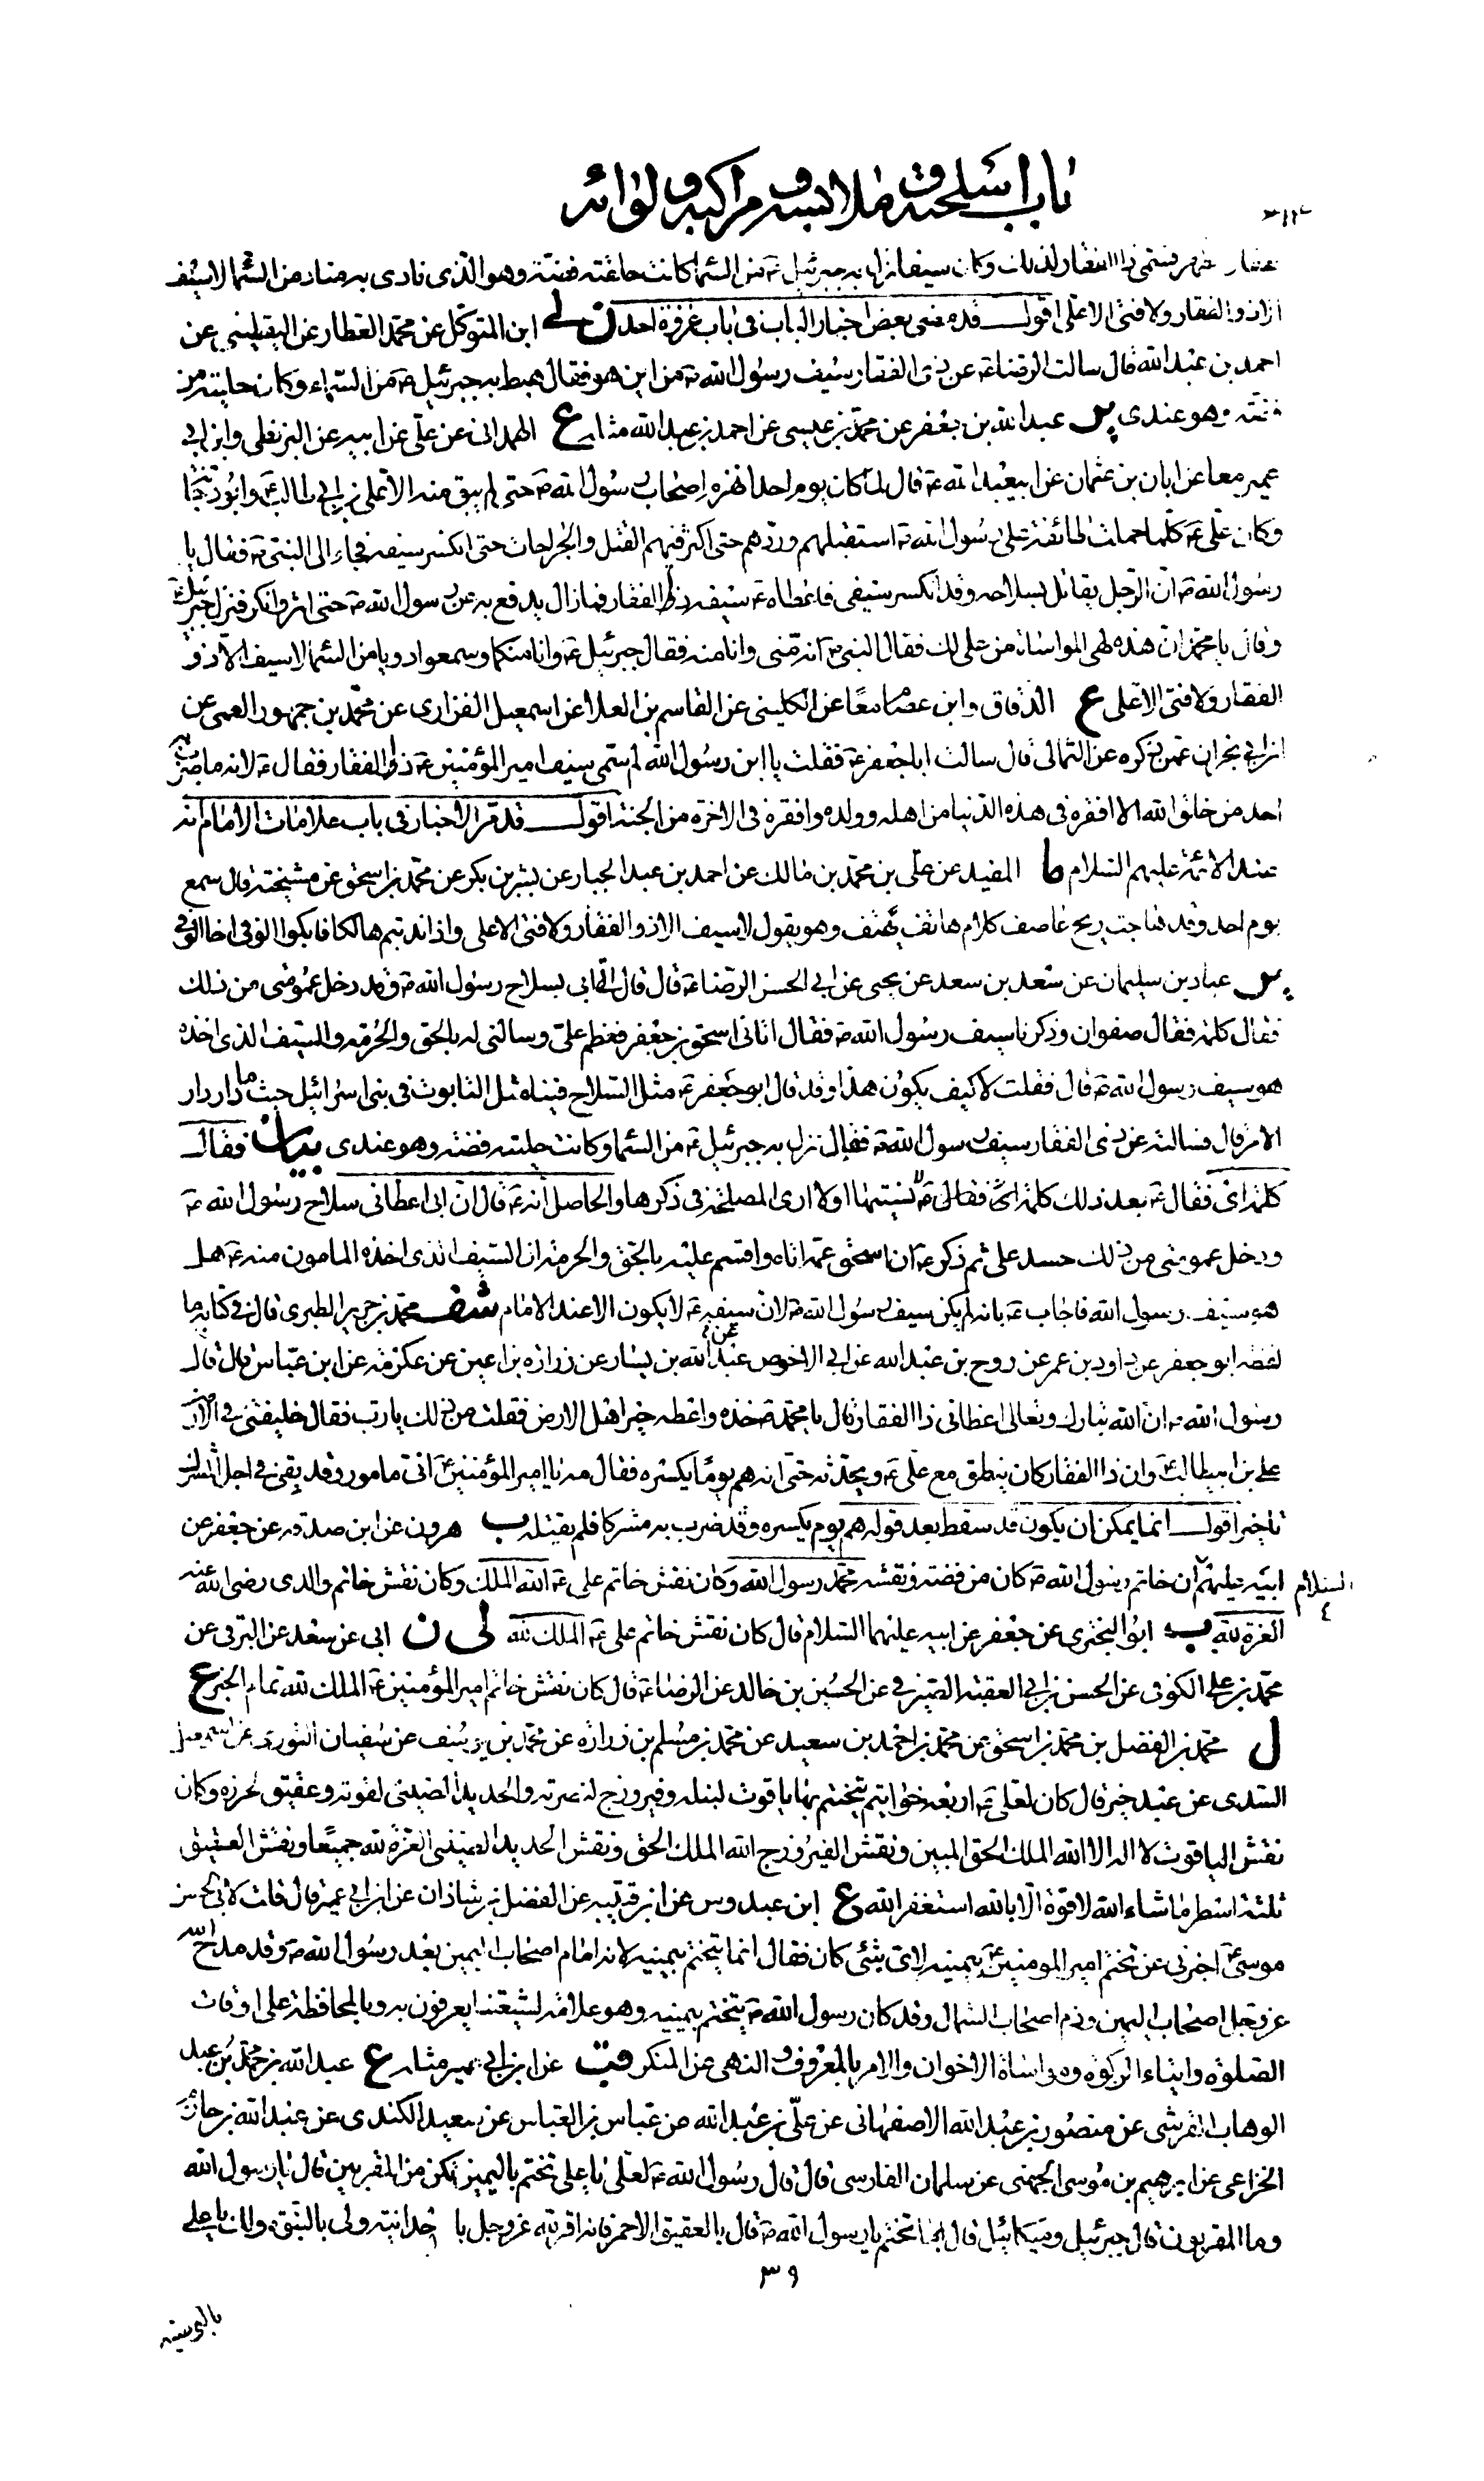 باب اسلحته وملابسه ومراكبه ولوائه
فسمى ذا الفقار لذلك وكان سيفا نزل به جبرئيل ع من السماء كانت حلقته فضة وهو الذي نادى به مناد من السماء لا سيف
الا ذو الفقار ولا فتى الا على اقول قد مضى بعض اخبار الباب في باب غزوة احد ن لى ابن المتوكل عن محمد العطار عن اليقطيني عن
احمد بن عبد الله قال سالت الرضا ع عن ذي الفقار سيف رسول الله ص من اين هو فقال هبط به جبرئيل ع من السماء وكان حليته من
فضة وهو عندى ير عبد الله بن جعفر عن محمد بن عيسى عن احمد بن عبد الله مثله ع الهمدانى عن على عن ابيه عن البزنطى وابن ابي
عمير معا عن ابان بن عثمان عن ابيعبد الله ع قال لما كان يوم احد انهزم اصحاب رسول الله ص حتى لم يبق معه الا على بن ابي طالب ع وابو دجانة
وكان على ع كلما حملت طائفة على رسول الله ص استقبلهم وردهم حتى اكثر فيهم القتل والجراحات حتى انكسر سيفه فجاء الى النبي ص فقال يا
رسول الله ص ان الرجل يقاتل بسلاحه وقد انكسر سيفى فاعطاه ع سيفه ذا الفقار فما زال يدفع به عن رسول الله ص حتى اثر وانكر فنزل جبرئيل ع
وقال يا محمد ان هذه لهى المواساة من على لك فقال النبي ص انه منى وانا منه فقال جبرئيل ع وانا منكما وسمعوا دويا من السماء لا سيف الا ذو
الفقار ولا فتى الا على ع الدقاق وابن عصام معا عن الكليني عن القاسم بن العلا عن اسمعيل الفزارى عن محمد بن جمهور العمى عن
ابن ابي نجران عمن ذكره عن الثمالى قال سالت ابا جعفر ع فقلت يا ابن رسول الله لم سمى سيف امير المؤمنين ع ذا الفقار فقال ع لانه ما ضرب به
احد من خلق الله الا افقره في هذه الدنيا من اهله وولده وافقره في الاخرة من الجنة اقول قد مر الاخبار في باب علامات الامام انه
عند الائمة عليهم السلام ما المفيد عن على بن محمد بن مالك عن احمد بن عبد الجبار عن بشر بن بكر عن محمد بن اسحق عن مشيخته قال سمع
يوم احد وقد هاجت ريح عاصف كلام هاتف يهتف وهو يقول لا سيف الا ذو الفقار ولا فتى الا على واذا ندبتم هالكا فابكوا الوفى اخا الوفى
ير عباد بن سليمان عن سعد بن سعد عن يحيى عن ابي الحسن الرضا ع قال قال اتانى بسلاح رسول الله ص وقد دخل عمومتى من ذلك
فقال كلمة فقال صفوان وذكرنا سيف رسول الله ص فقال اتانى اسحق بن جعفر فعظم على وسالنى له بالحق والحرمة السيف الذى اخذه
هو سيف رسول الله ص قال فقلت لا كيف يكون هذا وقد قال ابو جعفر ع مثل السلاح فينا مثل التابوت في بنى اسرائيل حيث ما دار دار
الامر قال فسالته عن ذي الفقار سيف رسول الله ص فقال نزل به جبرئيل ع من السماء وكانت حليته فضة وهو عندى بيان فقال
كلمة اى فقال ع بعد ذلك كلمة اى فقال ع نسيتها او لا ارى المصلحة في ذكرها والحاصل انه ع قال ان ابى اعطانى سلاح رسول الله ص
ودخل عمومتى من ذلك حسد على ثم ذكر ع ان اسحق عمه اتاه واقسم عليه بالحق والحرمة ان السيف الذى اخذه المامون منه ع هل
هو سيف رسول الله فاجاب ع بانه لم يكن سيف رسول الله ص لان سيفه ع لا يكون الا عند الامام شف محمد بن جرير الطبرى قال في كتابه ما
لفظه ابو جعفر عن داود بن عمر عن روح بن عبد الله عن ابي الاحوص عن عبد الله بن يسار عن زرارة بن اعين عن عكرمة عن ابن عباس قال قال
رسول الله ص ان الله تبارك وتعالى اعطانى ذا الفقار قال يا محمد ص خذه واعطه خير اهل الارض فقلت من ذلك يا رب فقال خليفتى في الارض
على بن ابيطالب ع وان ذا الفقار كان ينطق مع على ع ويحدثه حتى انه هم يوما يكسره فقال مه يا امير المؤمنين ع انى مامور وقد بقى في اجل المشرك
تاخير اقول انما يمكن ان يكون قد سقط بعد قوله هم يوم يكسره وقد ضرب به مشركا فلم يقتله ب هرون عن ابن صدقه عن جعفر عن
ابيه عليهم السلام ان خاتم رسول الله ص كان من فضة ونقشه محمد رسول الله وكان نقش خاتم على ع الله الملك وكان نقش خاتم والدى رضى الله عنه
العزة لله ب ابو البخترى عن جعفر عن ابيه عليهما السلام قال كان نقش خاتم على ع الملك لله لى ن ابى عن سعد عن البرقى عن
محمد بن على الكوفى عن الحسن بن ابي العقبة الصيرفى عن الحسين بن خالد عن الرضا ع قال كان نقش خاتم امير المؤمنين ع الملك لله تمام الخبر ع
ل محمد بن الفضل بن محمد بن اسحق عن محمد بن احمد بن سعيد عن محمد بن مسلم بن زرارة عن محمد بن يوسف عن سفيان الثورى عن اسمعيل
السدى عن عبد خير قال كان لعلى ع اربعة خواتيم يتختم بها ياقوت لنبله وفيروزج لنصرته والحديد الصينى لقوته وعقيق لحرزه وكان
نقش الياقوت لا اله الا الله الملك الحق المبين ونقش الفيروزج الله الملك الحق ونقش الحديد الصينى العزة لله جميعا ونقش العقيق
ثلثة اسطر ما شاء الله لا قوة الا بالله استغفر الله ع ابن عبدوس عن ابن قتيبه عن الفضل بن شاذان عن ابن ابي عمير قال قلت لابى الحسن
موسى ع اخبرنى عن تختم امير المومنين ع بيمينه لاى شئ كان فقال انما يتختم بيمينه لانه امام اصحاب اليمين بعد رسول الله ص وقد مدح الله
عز وجل اصحاب اليمين وذم اصحاب الشمال وقد كان رسول الله ص يتختم بيمينه وهو علامة لشيعتنا يعرفون به وبالمحافظة على اوقات
الصلوة وايتاء الزكوة ومواساة الاخوان والامر بالمعروف والنهى عن المنكر قب عن ابن ابي عمير مثله ع عبد الله بن محمد بن عبد
الوهاب القرشى عن منصور بن عبد الله الاصفهانى عن على بن عبد الله عن عباس بن العباس عن سعيد الكندى عن عبد الله بن حازم
الخزاعى عن ابرهيم بن موسى الجهنى عن سلمان الفارسى قال قال رسول الله ص لعلى يا على تختم باليمين تكن من المقربين قال يا رسول الله
وما المقربون قال جبرئيل وميكائيل قال بما اتختم يا رسول الله ص قال بالعقيق الاحمر فانه اقر لله عز وجل بالوحدانية ولى بالنبوة ولك يا على
٣٩
بالوصية